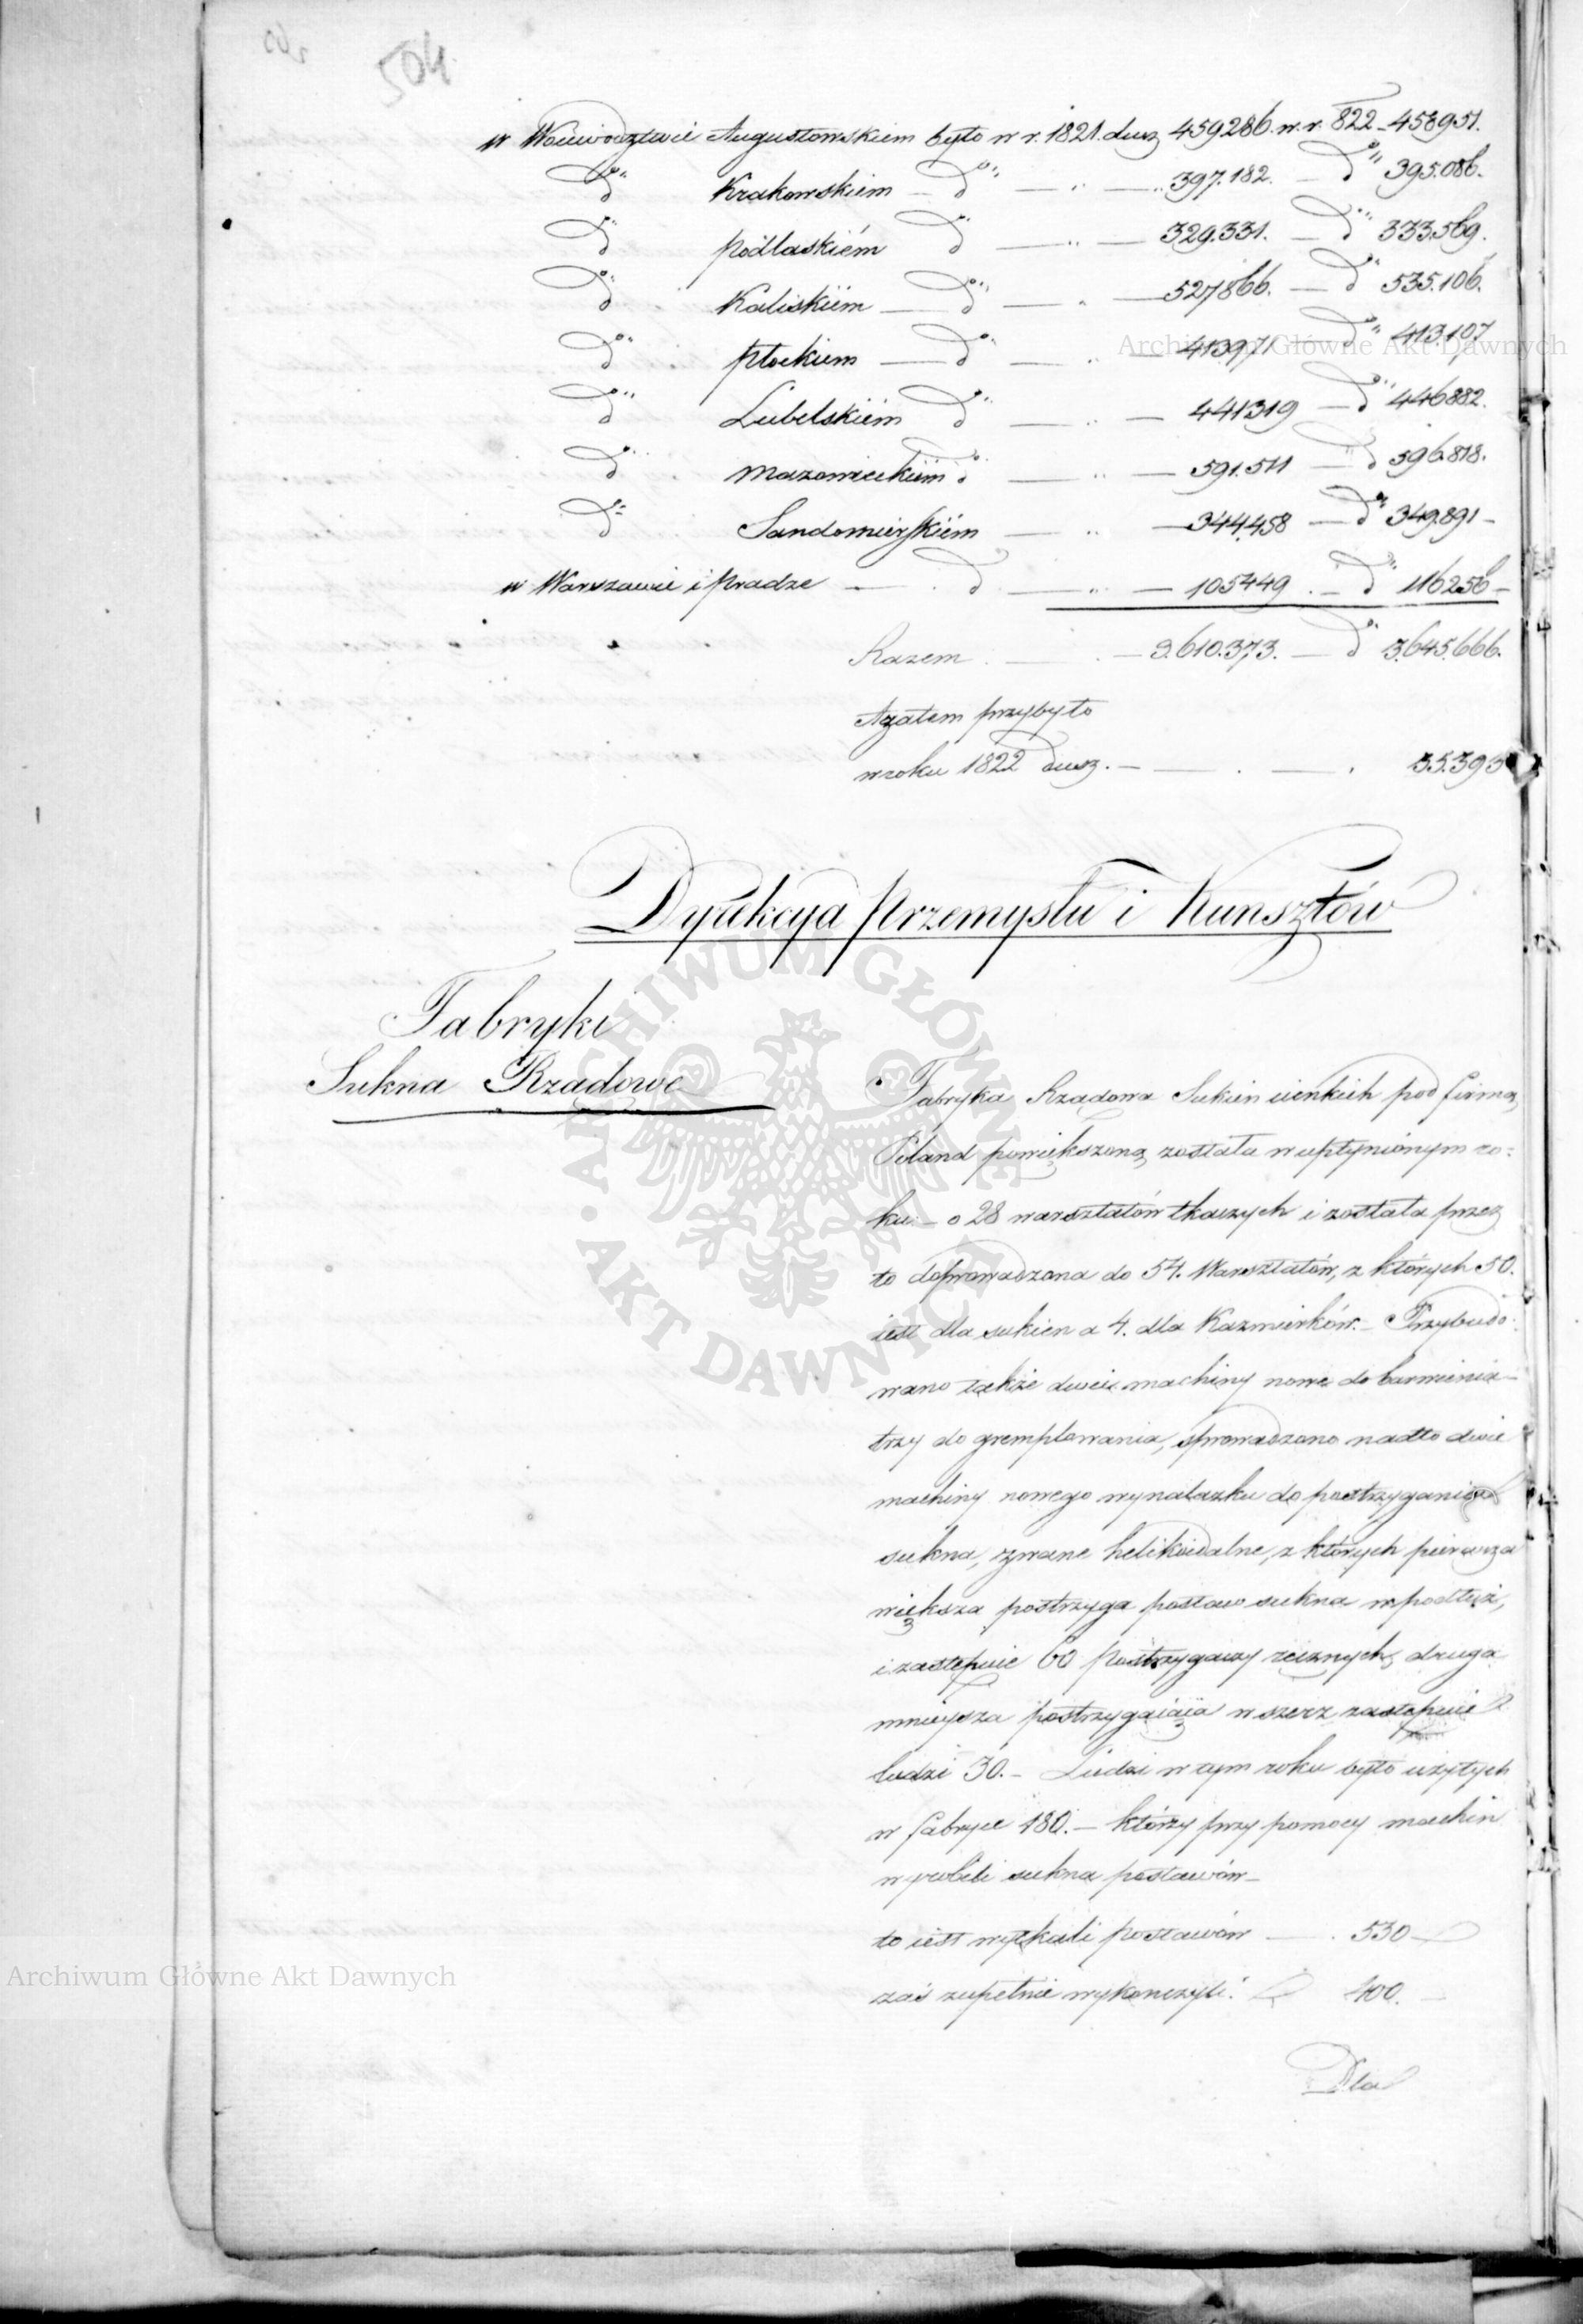 504.
w Woiewodztwie Augustowskiem było w r. 1821. dusz 459286. w. r. 822 - 458951.
do Krakowskiem — do — „ — 397.182. — do 395.086.
do podlaskiém do — „ — 329.331. — do 333.569.
do Kaliskiém — do — „ — 527866. — do 535.106.
do płockiem — do — „ — 413971 — do 413107
do Lubelskiém do — „ — 441319 — do 446882.
do mazowieckiém do — „ — 591.511 — do 596.818.
do Sandomierskiém — „ — 344.458 — do 349.891 -
w Warszawie i pradze — do — „ — 105449 . — do 116256 -
Razem . — . — 3.610.373. — do 3.645.666.
Azatem przybyło
w roku 1822 dusz. — . — . 35.393
Dyrekcya Przemysłu i Kunsztów
Fabryki
Sukna Rządowe
Fabryka Rządowa Sukien cienkich pod firmą
Poland powiększoną została w upłynionym ro:
ku: - o 28 warsztatów tkaczych i została przez
to doprowadzona do 54. Warsztatów, z których 50.
iest dla sukien a 4. dla Kazmirków. - Przybudo:
wano także dwie machiny nowe do barwienia -
trzy do gremplowania, sprowadzono nadto dwie
machiny nowego wynalazku do postrzygania
sukna, zwane helikoidalne, z których pierwsza
większa postrzyga postaw sukna wpodłuż,
i zastępuie 60 postrzygaczy ręcznych, druga
mnieysza postrzygaiąca w szerz zastępuie
ludzi 30. - Ludzi w tym roku było użytych
w fabryce 180. - którzy przy pomocy machin
wyrobili sukna postawów -
to iest wytkali postawów — . 530 -
zaś zupełnie wykonczyli. 400. -
Dla
Archiwum Główne Akt Dawnych
ARCHIWUM GŁÓWNE · AKT DAWNYCH ·
Archiwum Główne Akt Dawnych